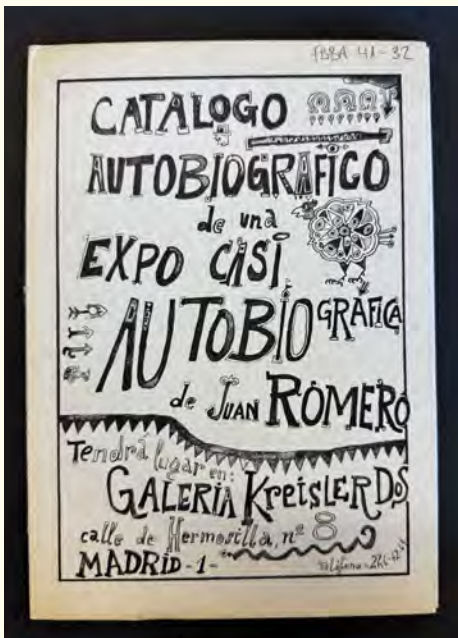 FBBA 41-32
CATALOGO
AUTOBIOGRAFICO
de una
EXPO CASI
AUTOBIOGRAFICA
de JUAN ROMERO
Tendrá lugar en:
GALERIA KREISLER DOS
calle de Hermosilla, nº 8
MADRID-1-